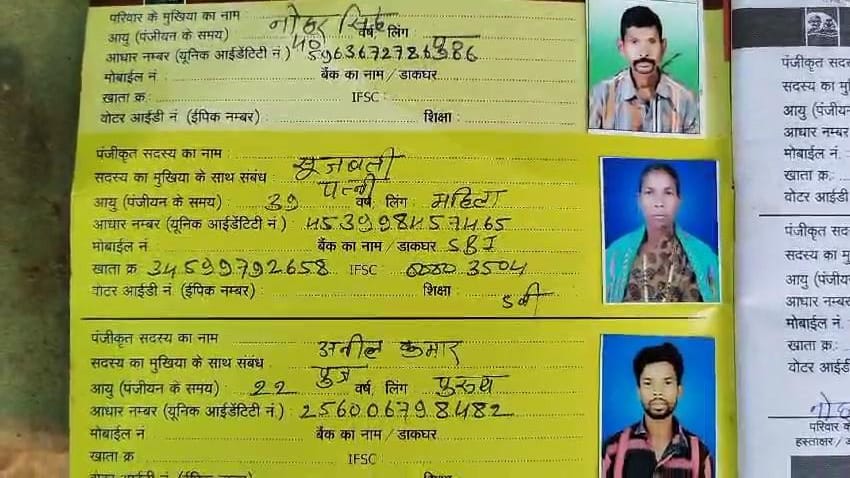 परिवार के मुखिया का नाम नोहर सिंह
आयु (पंजीयन के समय) 40 वर्ष, लिंग पु
आधार नम्बर (यूनिक आईडेंटिटी नं.) 5963672786986
मोबाईल नं. बैंक का नाम / डाकघर
खाता क्र. IFSC :
वोटर आईडी नं. (ईपिक नम्बर) : शिक्षा :
पंजीकृत सदस्य का नाम सूजबती
सदस्य का मुखिया के साथ संबंध पत्नी
आयु (पंजीयन के समय) : 39 वर्ष, लिंग महिला
आधार नम्बर (यूनिक आईडेंटिटी नं.) 453998457465
मोबाईल नं. बैंक का नाम / डाकघर SBI
खाता क्र 34599792658 IFSC 3504
वोटर आईडी नं. (ईपिक नम्बर) शिक्षा : 5 वी
पंजीकृत सदस्य का नाम अनील कुमार
सदस्य का मुखिया के साथ संबंध पुत्र
आयु (पंजीयन के समय) 22 वर्ष, लिंग पुरुष
आधार नम्बर (यूनिक आईडेंटिटी नं.) : 256006798482
मोबाईल नं. बैंक का नाम / डाकघर
खाता क्र IFSC :
वोटर आईडी नं. (ईपिक नम्बर) शिक्षा :
पंजीकृत सदस
सदस्य का मु
आयु (पंजीय
आधार नम्बर
मोबाईल नं.
खाता क्र.
वोटर आईडी
पंजीकृत सदस
सदस्य का मु
आयु (पंजीय
आधार नम्बर
मोबाईल नं.
खाता क्र.:
वोटर आईडी
नोह
परिवार के
हस्ताक्षर /